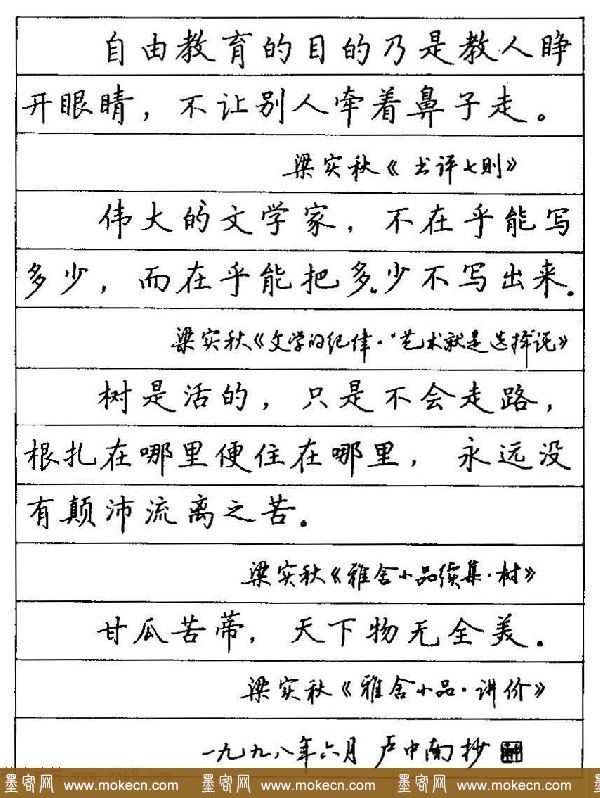 自由教育的目的乃是教人睁
开眼睛，不让别人牵着鼻子走。
梁实秋《书评七则》
伟大的文学家，不在乎能写
多少，而在乎能把多少不写出来。
梁实秋《文学的纪律·“艺术就是选择说》
树是活的，只是不会走路，
根扎在哪里便住在哪里，永远没
有颠沛流离之苦。
梁实秋《雅舍小品续集·树》
甘瓜苦蒂，天下物无全美。
梁实秋《雅舍小品·讲价》
一九九八年六月 卢中南抄
墨客网 www.mokecn.com 墨客网 www.mokecn.com 墨客网 www.mokecn.com